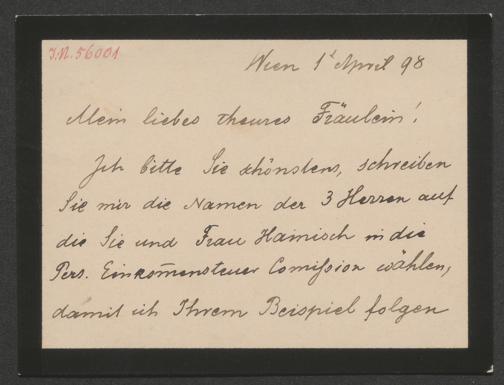 J.N. 56001
Wien 1t April 98
Mein liebes theures Fräulein!
Ich bitte Sie schönstens, schreiben
Sie mir die Namen der 3 Herren auf
die Sie und Frau Hainisch in die
Pers. Einkom̅ensteuer Comission wählen,
damit ich Ihrem Beispiel folgen